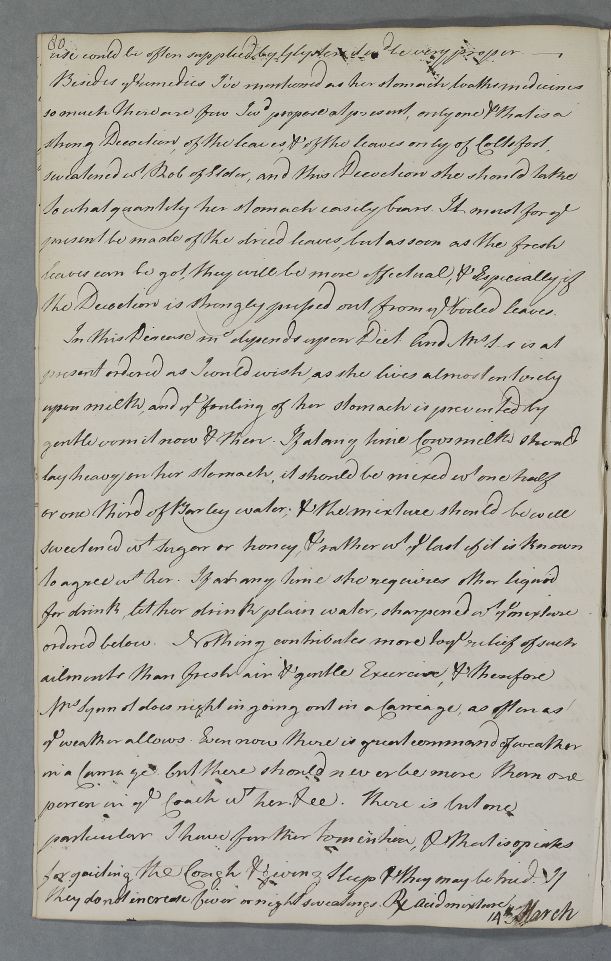 80
use could be often supplied by Glysters wd be very proper
Besides ye remedies I've mentioned as her stomach loaths medicines
so much there are few I wd propose at present, only one & that is a
strong Decoction, of the leaves & of the leaves only of Coltsfoot,
sweetened wt Rob of Elder, and this Decoction she should take
to what quantity her stomach easily bears. It must for ye
present be made of the dried leaves, but as soon as the fresh
leaves can be got, they will be more effectual, & Especially if
the Decoction is strongly pressed out from ye boiled leaves.
In this Disease mch depends upon Diet and Mrs S-s is at
present ordered as I would wish, as she lives almost entirely
upon milk, and ye fouling of her stomach is prevented by
gentle vomit now & then. If at any time Cows milk should
lay heavy on her stomach, it should be mixed wt one half
or one third of Barley water; & the mixture should be well
sweetened wt sugar or honey & rather wt ye last if it is known
to agree wt her. If at any time she requires other liquid
for drink, let her drink plain water, sharpened wt ye mixture
ordered below. Nothing contributes more to ye relief of such
ailments than fresh air & gentle Exercise, & therefore
Mrs Synnot does right in going out in a Carriage, as often as
ye weather allows. Even now there is great command of weather
in a Carriage but there should never be more than one
person in ye Coach wt her. &ee. There is but one
particular I have further to mention, & that is opiates
for quieting the Cough & giving sleep & they may be tried. If
they do not increase fever or night sweatings. Rx Acid mixture
14 March